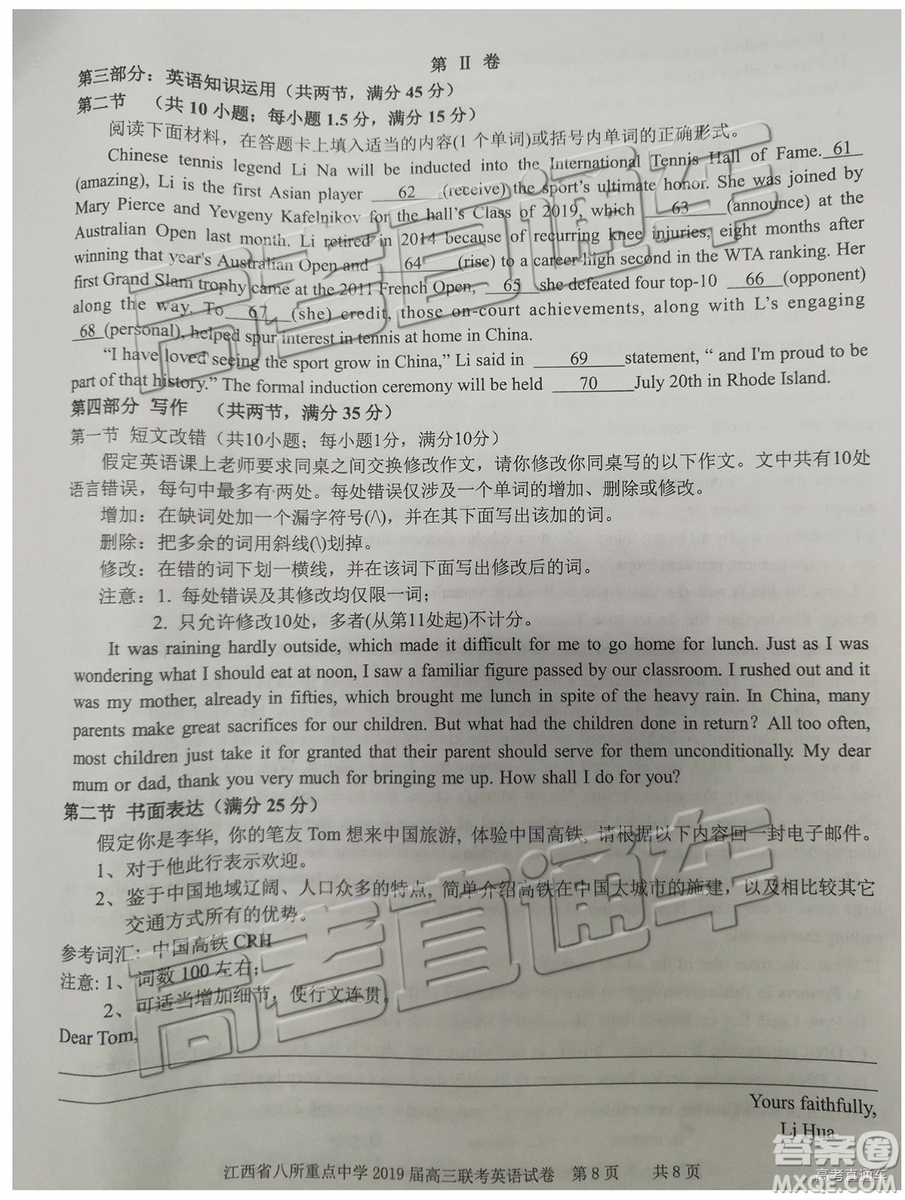 第 II 卷
第三部分：英语知识运用（共两节，满分 45 分）
第二节 （共 10 小题；每小题 1.5 分，满分 15 分）
阅读下面材料，在答题卡上填入适当的内容(1 个单词)或括号内单词的正确形式。
Chinese tennis legend Li Na will be inducted into the International Tennis Hall of Fame. 61
(amazing), Li is the first Asian player 62 (receive) the sport's ultimate honor. She was joined by
Mary Pierce and Yevgeny Kafelnikov for the hall's Class of 2019, which 63 (announce) at the
Australian Open last month. Li retired in 2014 because of recurring knee injuries, eight months after
winning that year's Australian Open and 64 (rise) to a career-high second in the WTA ranking. Her
first Grand Slam trophy came at the 2011 French Open, 65 she defeated four top-10 66 (opponent)
along the way. To 67 (she) credit, those on-court achievements, along with L's engaging
68 (personal), helped spur interest in tennis at home in China.
“I have loved seeing the sport grow in China,” Li said in 69 statement, “ and I'm proud to be
part of that history.” The formal induction ceremony will be held 70 July 20th in Rhode Island.
第四部分 写作 （共两节，满分 35 分）
第一节 短文改错（共10小题；每小题1分，满分10分）
假定英语课上老师要求同桌之间交换修改作文，请你修改你同桌写的以下作文。文中共有10处
语言错误，每句中最多有两处。每处错误仅涉及一个单词的增加、删除或修改。
增加：在缺词处加一个漏字符号(/\)，并在其下面写出该加的词。
删除：把多余的词用斜线(\)划掉。
修改：在错的词下划一横线，并在该词下面写出修改后的词。
注意：1. 每处错误及其修改均仅限一词；
2. 只允许修改10处，多者(从第11处起)不计分。
It was raining hardly outside, which made it difficult for me to go home for lunch. Just as I was
wondering what I should eat at noon, I saw a familiar figure passed by our classroom. I rushed out and it
was my mother, already in fifties, which brought me lunch in spite of the heavy rain. In China, many
parents make great sacrifices for our children. But what had the children done in return? All too often,
most children just take it for granted that their parent should serve for them unconditionally. My dear
mum or dad, thank you very much for bringing me up. How shall I do for you?
第二节 书面表达（满分 25 分）
假定你是李华，你的笔友 Tom 想来中国旅游，体验中国高铁，请根据以下内容回一封电子邮件。
1、对于他此行表示欢迎。
2、鉴于中国地域辽阔、人口众多的特点，简单介绍高铁在中国大城市的施建，以及相比较其它
交通方式所有的优势。
参考词汇：中国高铁 CRH
注意：1、词数 100 左右；
2、可适当增加细节，使行文连贯。
Dear Tom,
Yours faithfully,
Li Hua
江西省八所重点中学 2019 届高三联考英语试卷 第 8 页 共 8 页
高考直通车
高考直通车
答案卷
高考直通车